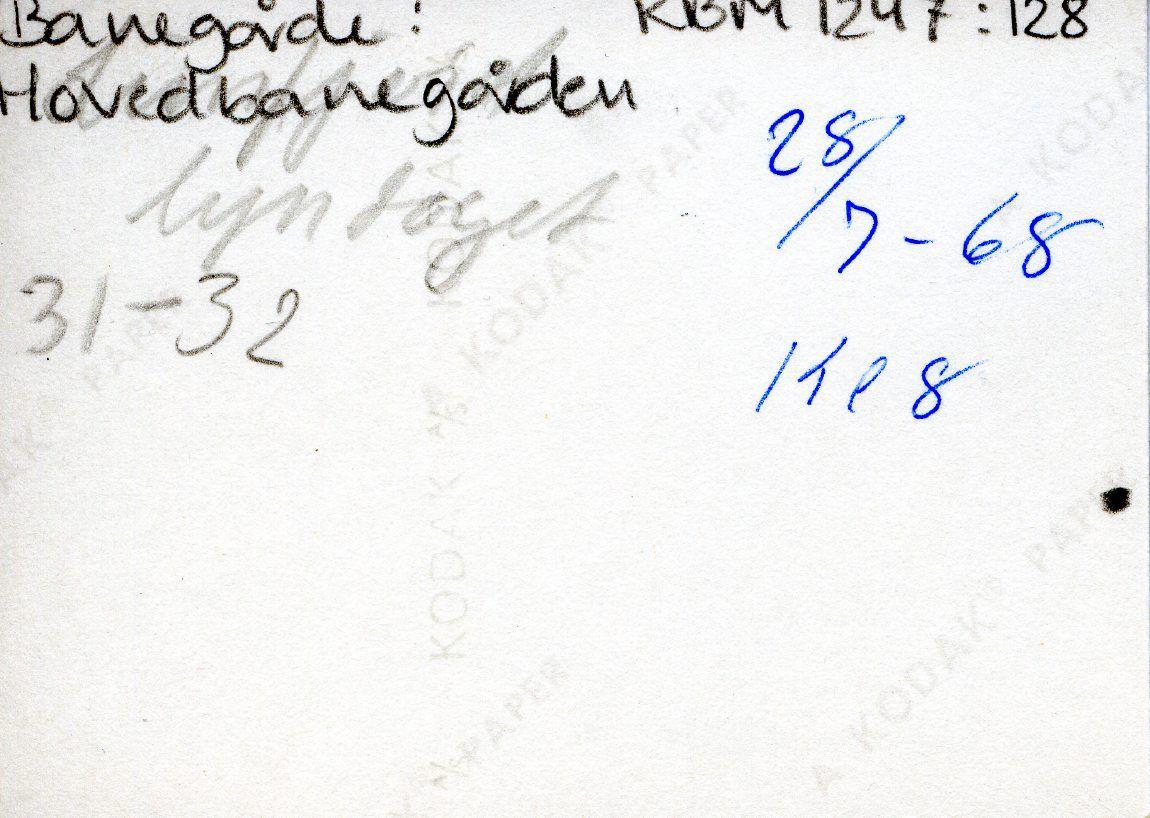 Banegårde: KBM 1247:128
Hovedbanegården
lyntoget
28/7-68
31-32
Kl 8
KODAK PAPER
KODAK PAPER
KODAK
KODAK PAPER
KODAK
PAPER